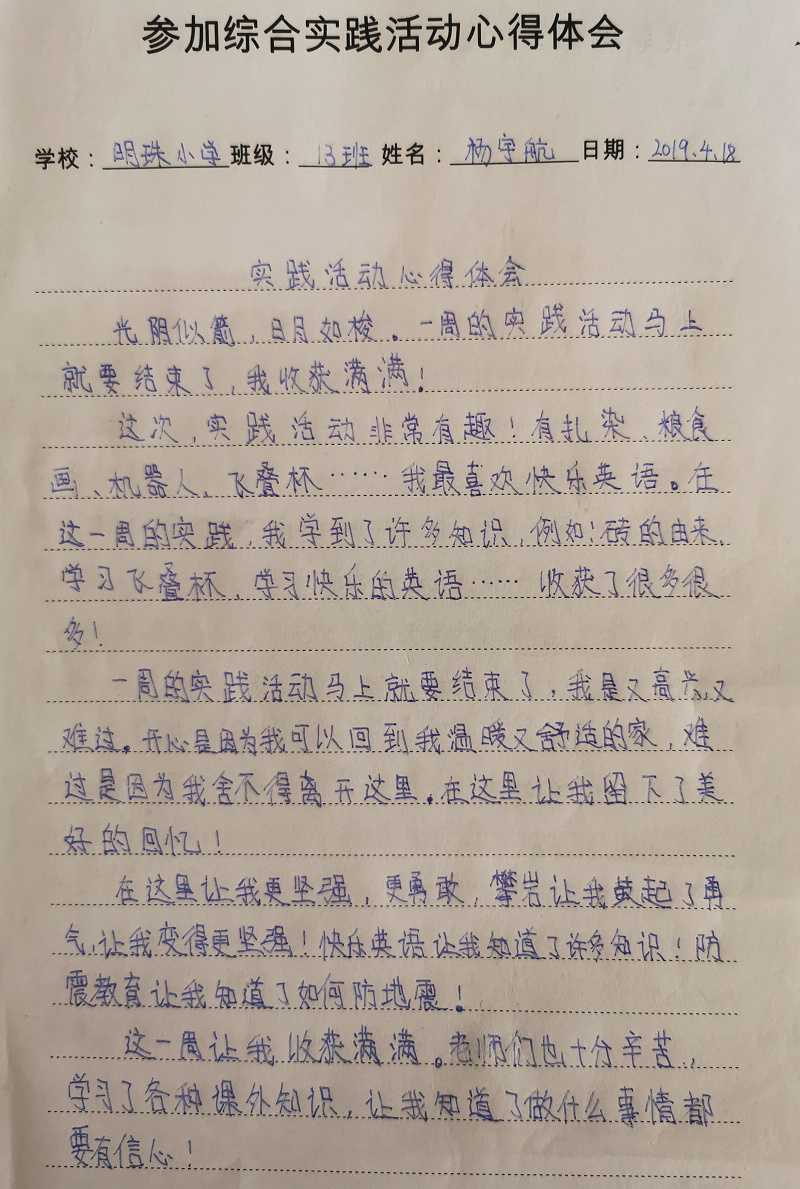 参加综合实践活动心得体会
学校：明珠小学班级：13班 姓名：杨宇航 日期：2019.4.18
实践活动心得体会
光阴似箭，日月如梭。一周的实践活动马上
就要结束了，我收获满满！
这次，实践活动非常有趣！有扎染、粮食
画、机器人、飞叠杯……我最喜欢快乐英语。在
这一周的实践，我学到了许多知识，例如：砖的由来，
学习飞叠杯，学习快乐的英语……收获了很多很
多！
一周的实践活动马上就要结束了，我是又高兴又
难过。开心是因为我可以回到我温暖又舒适的家，难
过是因为我舍不得离开这里。在这里让我留下了美
好的回忆！
在这里让我更坚强，更勇敢，攀岩让我鼓起了勇
气，让我变得更坚强！快乐英语让我知道了许多知识！防
震教育让我知道了如何防地震！
这一周让我收获满满。老师们也十分辛苦，
学习了各种课外知识，让我知道了做什么事情都
要有信心！